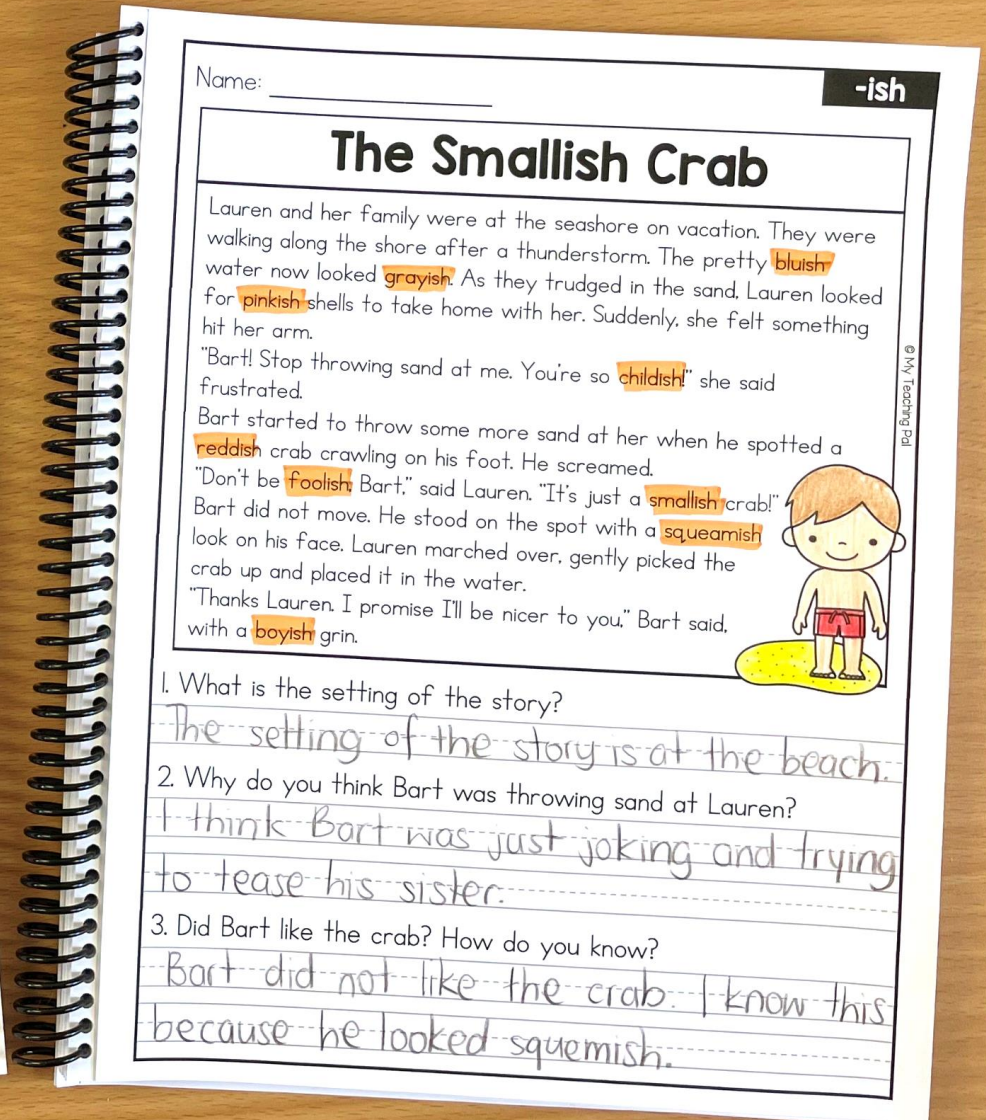 Name:
-ish
The Smallish Crab
Lauren and her family were at the seashore on vacation. They were
walking along the shore after a thunderstorm. The pretty bluish
water now looked grayish. As they trudged in the sand, Lauren looked
for pinkish shells to take home with her. Suddenly, she felt something
hit her arm.
"Bart! Stop throwing sand at me. You're so childish!" she said
frustrated.
Bart started to throw some more sand at her when he spotted a
reddish crab crawling on his foot. He screamed.
"Don't be foolish, Bart," said Lauren. "It's just a smallish crab!"
Bart did not move. He stood on the spot with a squeamish
look on his face. Lauren marched over, gently picked the
crab up and placed it in the water.
"Thanks Lauren. I promise I'll be nicer to you," Bart said,
with a boyish grin.
© My Teaching Pal
1. What is the setting of the story?
The setting of the story is at the beach.
2. Why do you think Bart was throwing sand at Lauren?
I think Bart was just joking and trying
to tease his sister.
3. Did Bart like the crab? How do you know?
Bart did not like the crab. I know this
because he looked squemish.